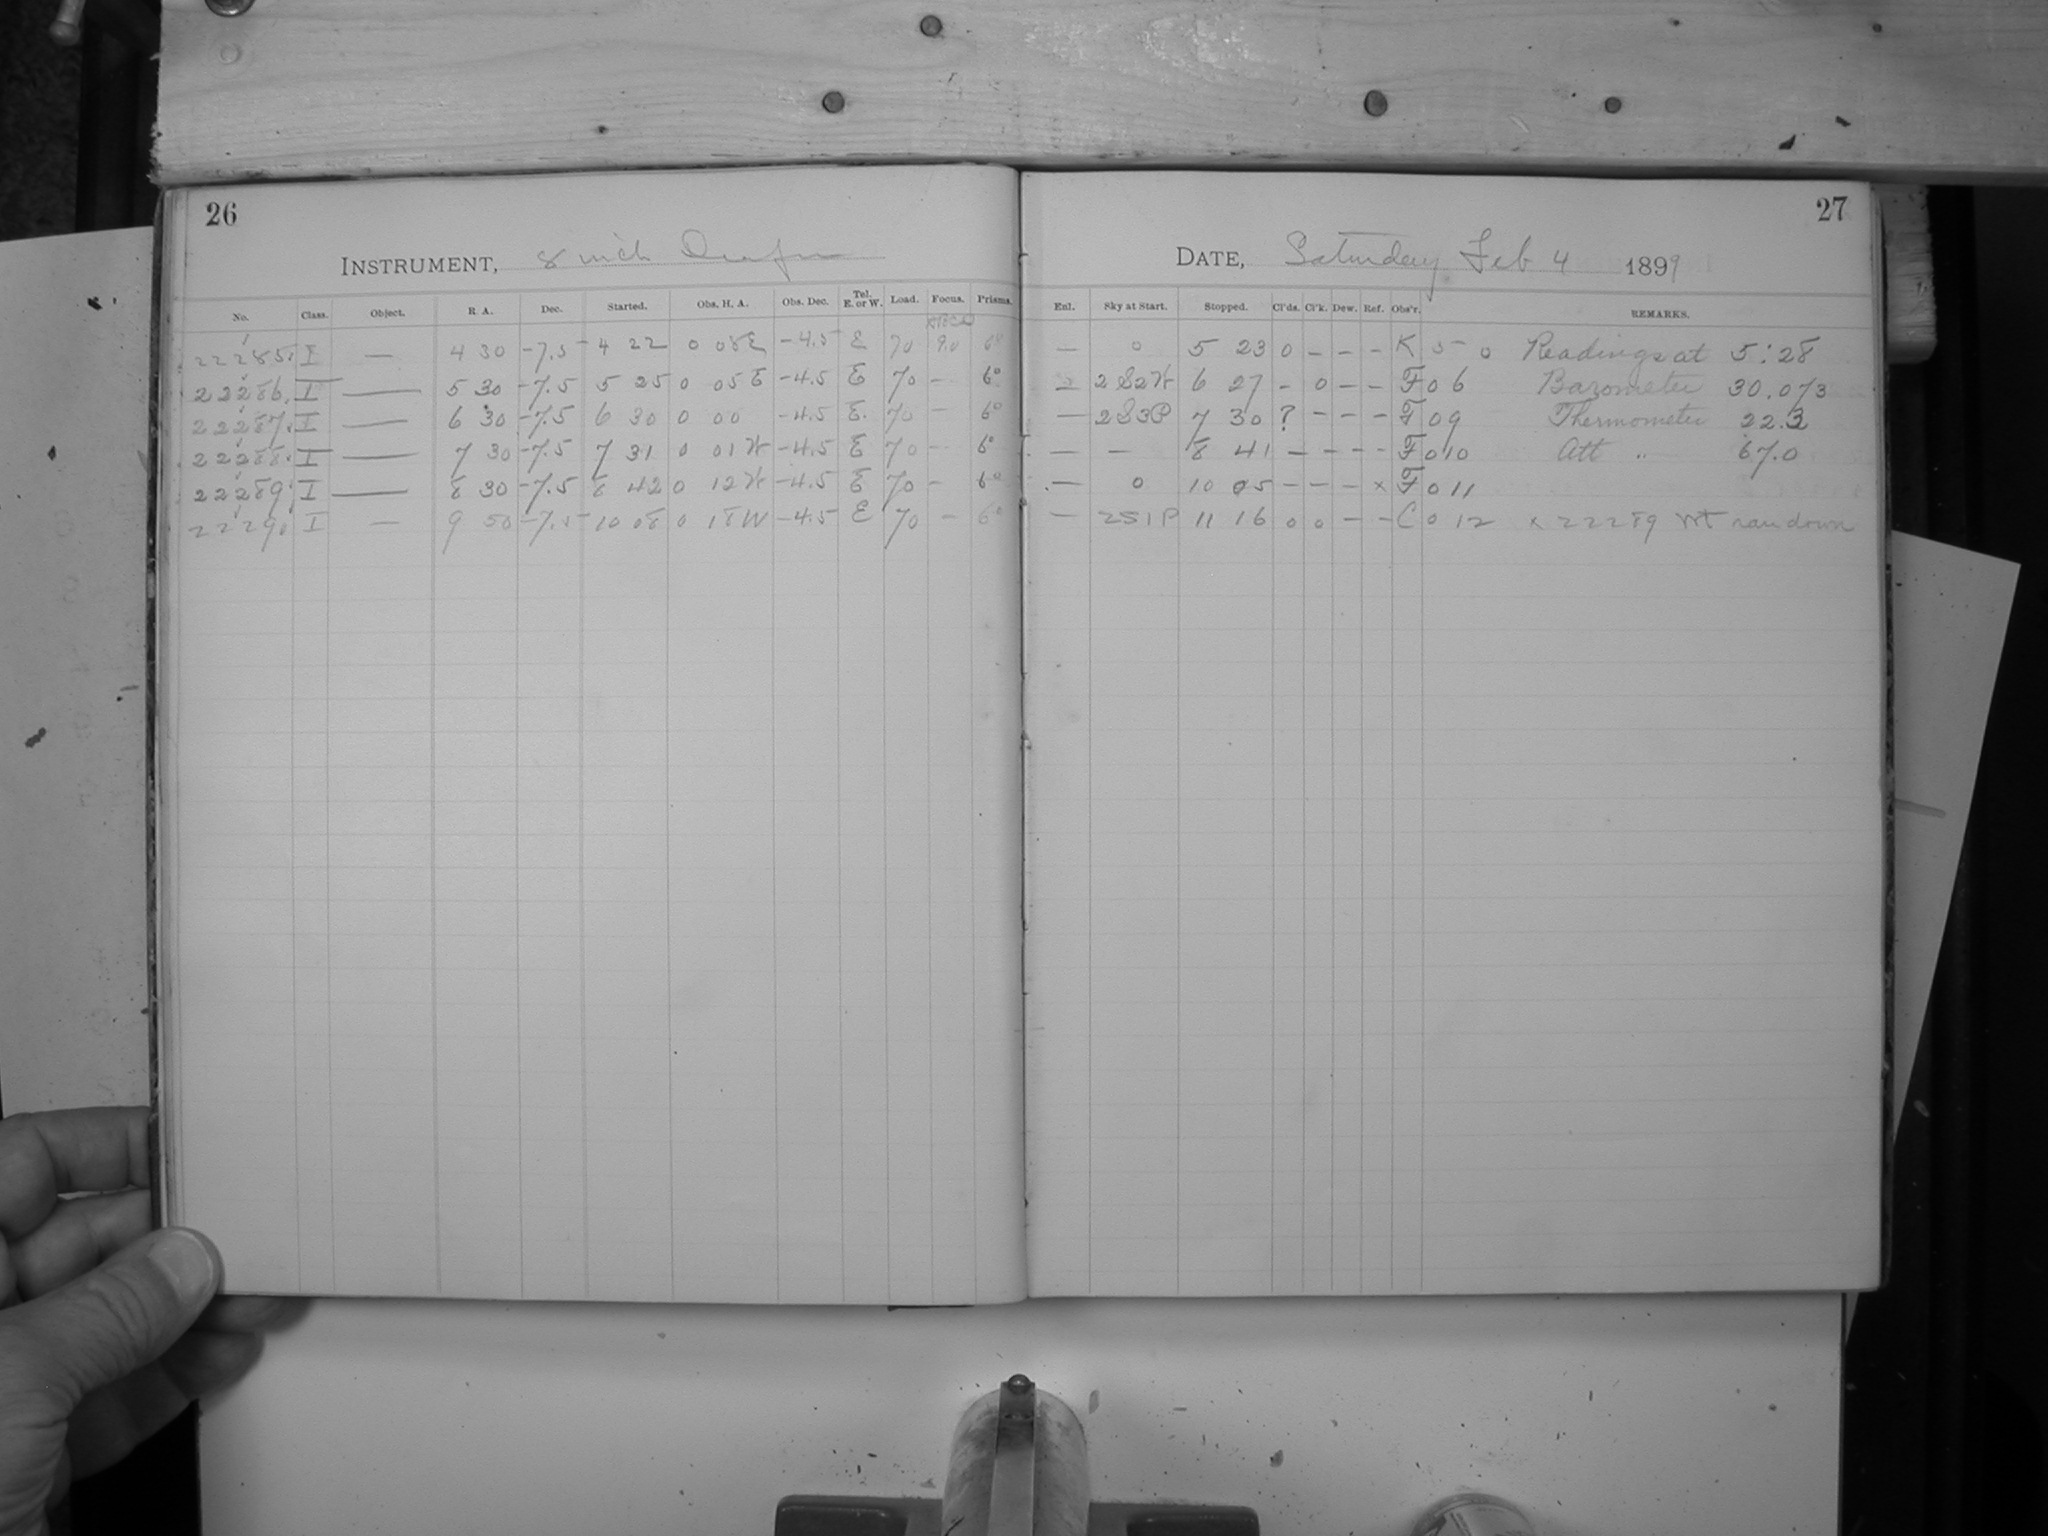 26
INSTRUMENT, 8 inch Draper
No. Class. Object. R. A. Dec. Started. Obs. H. A. Obs. Dec. Tel. E. or W. Load. Focus. Prisms.
22285. I — 4 30 -7.5 4 22 0 08 E -4.5 E 70 9.0 6°
22286. I — 5 30 -7.5 5 25 0 05 E -4.5 E 70 - 6°
22287. I — 6 30 -7.5 6 30 0 00 -4.5 E. 70 - 6°
22288. I — 7 30 -7.5 7 31 0 01 W -4.5 E 70 - 6°
22289. I — 8 30 -7.5 8 42 0 12 W -4.5 E 70 - 6°
22290 I — 9 50 -7.5 10 08 0 18 W -4.5 E 70 - 6°
27
DATE, Saturday Feb 4 1899
Enl. Sky at Start. Stopped. Cl'ds. Cl'k. Dew. Ref. Obs'r. REMARKS.
— 0 5 23 0 - - - K 5 0 Readings at 5:28
— 2S2W 6 27 - 0 - - F 0 6 Barometer 30.073
— 2S3P 7 30 ? - - - F 0 9 Thermometer 22.3
— — 8 41 - - - - F 0 10 Att " 67.0
— 0 10 05 - - - x F 0 11
— 2S1P 11 16 0 0 - - C 0 12 x 22289 Wt ran down